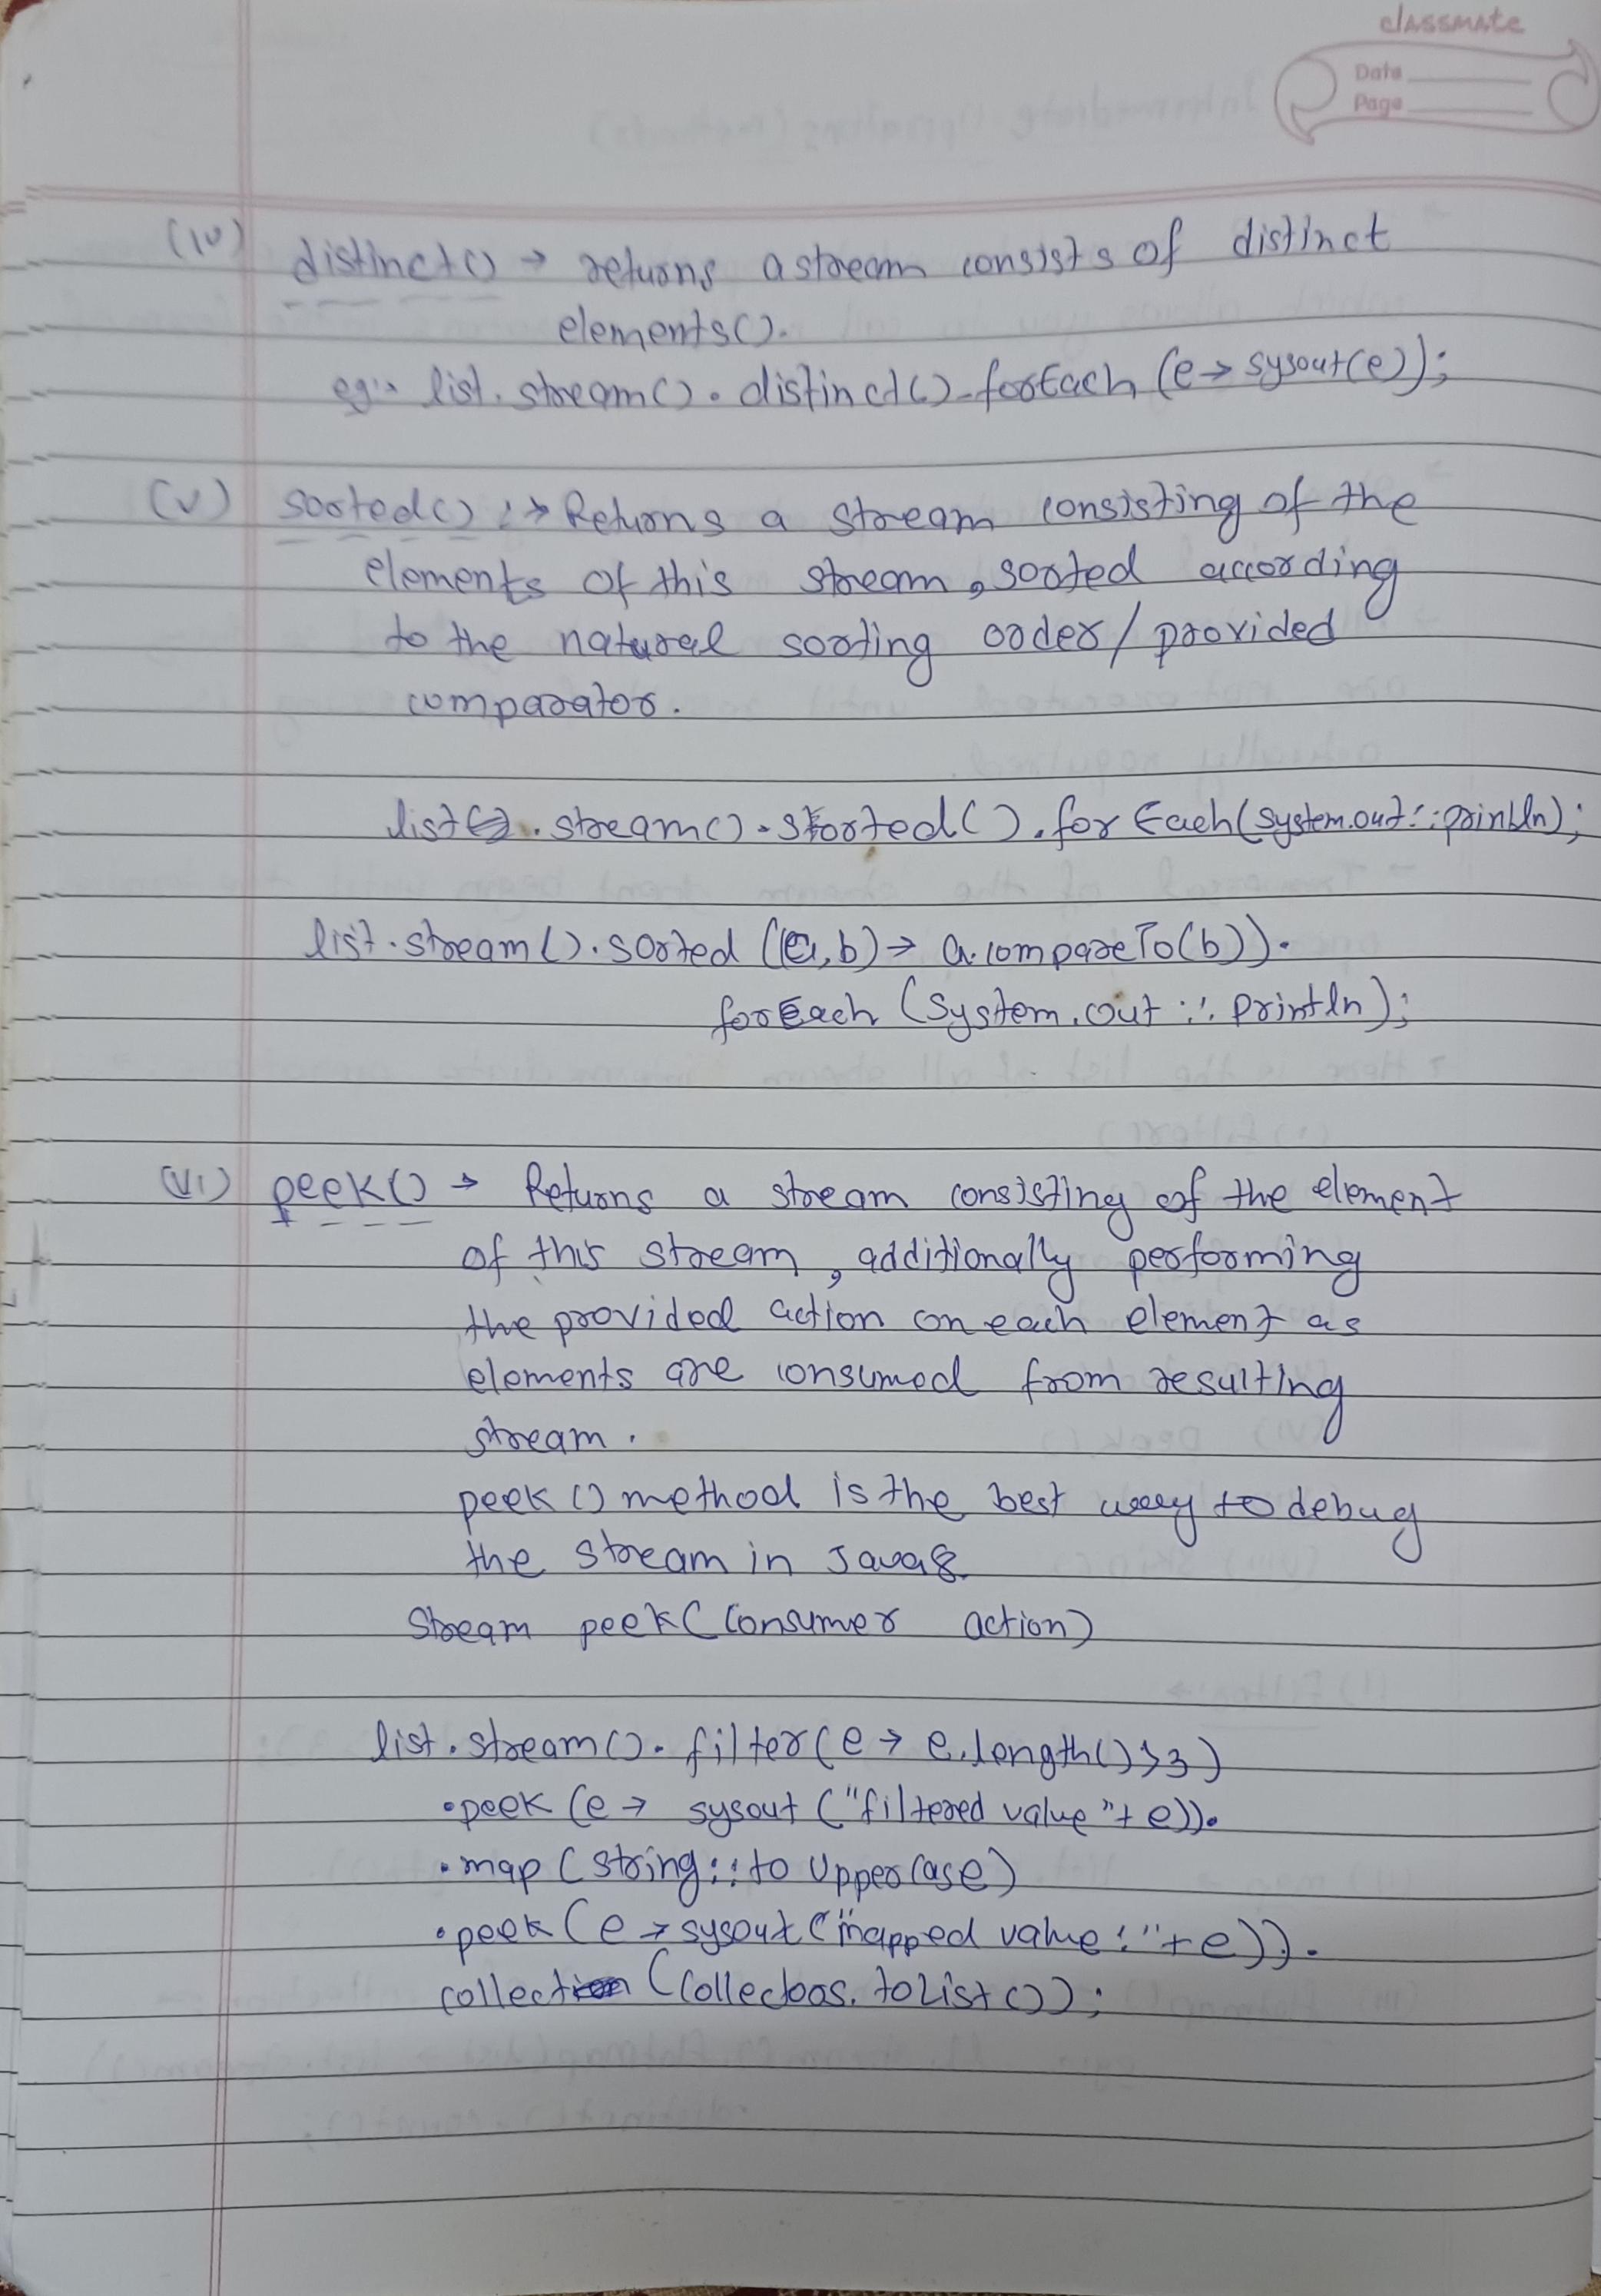 classmate
Date
Page
(iv) distinct() → returns a stream consists of distinct
elements().
eg:- list.stream().distinct().forEach(e→sysout(e));
(v) sorted() :→ Returns a stream consisting of the
elements of this stream, sorted according
to the natural sorting order/provided
comparator.
list.stream().sorted().forEach(System.out::println);
list.stream().sorted((a,b)→ a.compareTo(b)).
forEach(System.out::println);
(vi) peek() → Returns a stream consisting of the element
of this stream, additionally performing
the provided action on each element as
elements are consumed from resulting
stream.
peek() method is the best way to debug
the stream in Java8.
Stream peek(Consumer action)
list.stream().filter(e → e.length()>3)
.peek(e → sysout("filtered value"+e)).
.map(String::toUpperCase)
.peek(e→sysout("mapped value:"+e)).
collect(Collectors.toList());